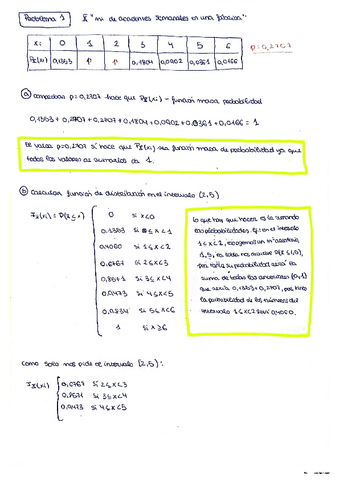 Problema 1 ξ "nº de accidentes semanales en una fábrica"
xi 0 1 2 3 4 5 6
Pξ(xi) 0,1353 p p 0,1804 0,0902 0,0361 0,0166
p=0,2707
a) comprobar p=0,2707 hace que Pξ(xi) - función masa probabilidad
0,1353 + 0,2707 + 0,2707 + 0,1804 + 0,0902 + 0,0361 + 0,0166 = 1
El valor p=0,2707 sí hace que Pξ(xi) sea función masa de probabilidad ya que
todos los valores al sumarlos da 1.
b) Calcular función de distribución en el intervalo (2,5)
Fξ(xi) = P(ξ ≤ x)
0 si x<0
0,1353 si 0≤x<1
0,4060 si 1≤x<2
0,6767 si 2≤x<3
0,8571 si 3≤x<4
0,9473 si 4≤x<5
0,9834 si 5≤x<6
1 si x≥6
lo que hay que hacer es ir sumando
las probabilidades. Ej: en el intervalo
1≤x<2, escogemos un nº aleatorio,
1,5,
por tanto su probabilidad sería la
suma de todas las anteriores (0,1)
que sería 0,1353+0,2707, por tanto
la probabilidad de los números del
intervalo 1≤x<2 será 0,4060.
como solo nos pide el intervalo (2,5):
Fξ(xi)
0,6767 si 2≤x<3
0,8571 si 3≤x<4
0,9473 si 4≤x<5